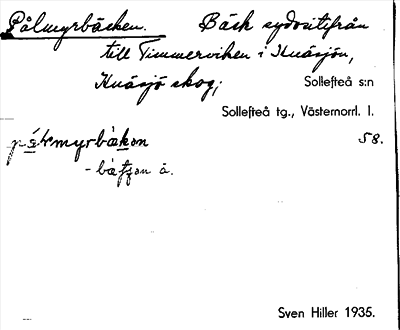 Pålmyrbäcken. Bäck sydostifrån
till Timmerviken i Knäsjön,
Knäsjö skog; Sollefteå s:n
Sollefteå tg., Västernorrl. l.
58.
å.
Sven Hiller 1935.